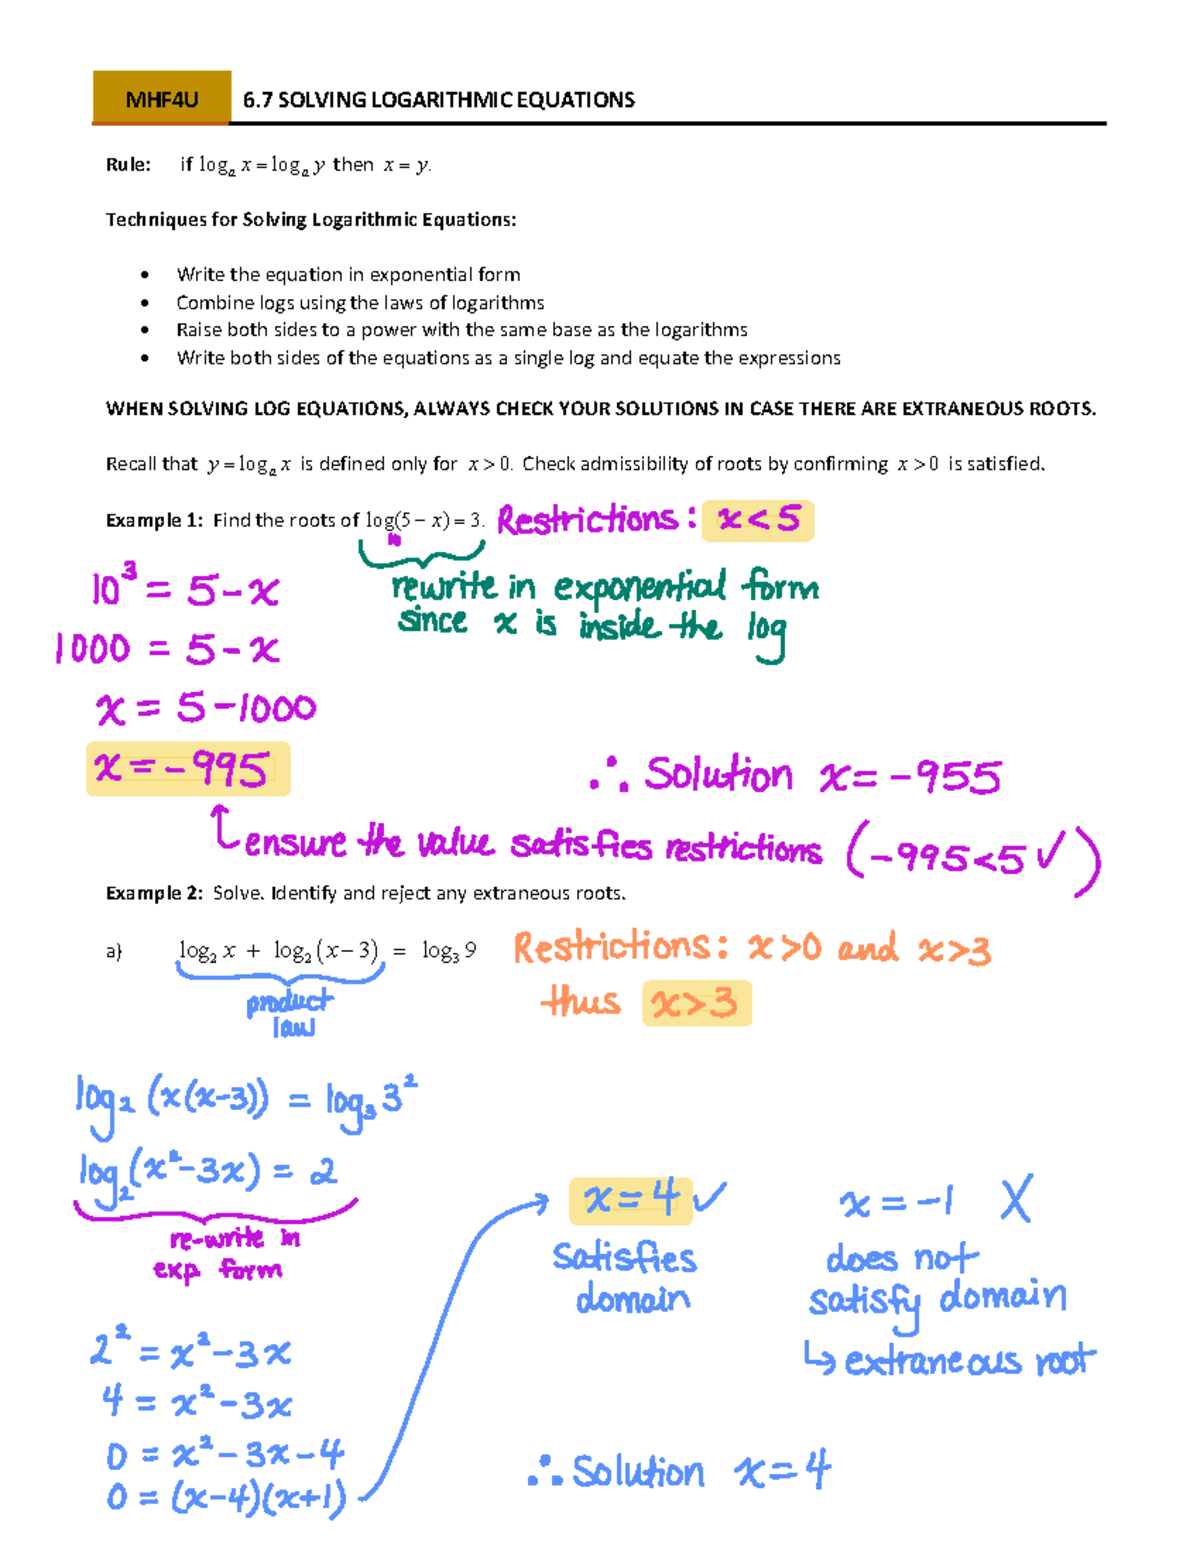 MHF4U 6.7 SOLVING LOGARITHMIC EQUATIONS
Rule: if logₐ x = logₐ y then x = y.
Techniques for Solving Logarithmic Equations:
• Write the equation in exponential form
• Combine logs using the laws of logarithms
• Raise both sides to a power with the same base as the logarithms
• Write both sides of the equations as a single log and equate the expressions
WHEN SOLVING LOG EQUATIONS, ALWAYS CHECK YOUR SOLUTIONS IN CASE THERE ARE EXTRANEOUS ROOTS.
Recall that y = logₐ x is defined only for x > 0. Check admissibility of roots by confirming x > 0 is satisfied.
Example 1: Find the roots of log(5 − x) = 3. Restrictions: x < 5
10
10³ = 5 - x
rewrite in exponential form
since x is inside the log
1000 = 5 - x
x = 5 - 1000
x = -995
∴ Solution x = -955
ensure the value satisfies restrictions (-995 < 5 ✓)
Example 2: Solve. Identify and reject any extraneous roots.
a) log₂ x + log₂ (x − 3) = log₃ 9 Restrictions: x > 0 and x > 3
product
law
thus x > 3
log₂ (x(x-3)) = log₃ 3²
log₂ (x² - 3x) = 2
re-write in
exp form
2² = x² - 3x
4 = x² - 3x
0 = x² - 3x - 4
0 = (x-4)(x+1)
x = 4 ✓
satisfies
domain
x = -1 X
does not
satisfy domain
↳ extraneous root
∴ Solution x = 4